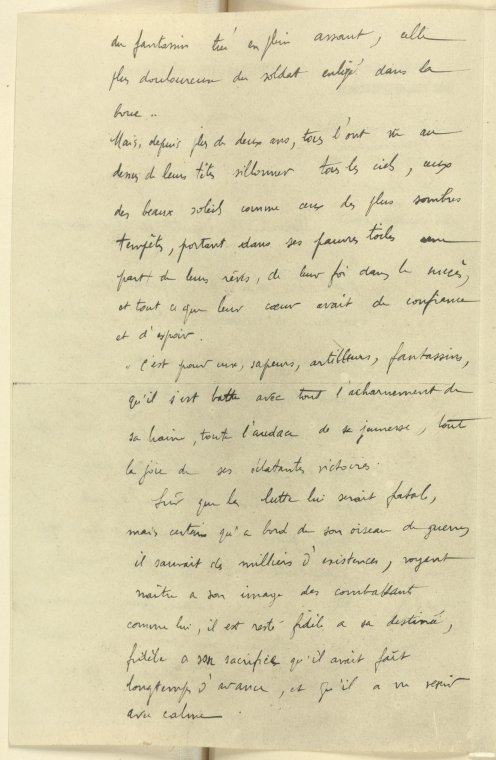 du fantassin tué en plein assaut, celle
plus douloureuse du soldat enlizé dans la
boue..
Mais, depuis plus de deux ans, tous l'ont vu au
dessus de leurs têtes sillonner tous les ciels, ceux
des beaux soleils comme ceux des plus sombres
tempêts, portant dans ses pauvres toiles une
part de leurs rêves, de leur foi dans le succès,
et tout ce que leur cœur avait de confiance
et d'espoir.
"C'est pour eux, sapeurs, artilleurs, fantassins,
qu'il s'est battu avec tout l'acharnement de
sa haine, toute l'audace de sa jeunesse, tout
la joie de ses éclatantes victoires.
Sûr que la lutte lui serait fatal,
mais certain qu'a bord de son oiseau de guerre,
il sauvait des milliers d'existences, voyant
naître a son image des combattant
comme lui, il est resté fidèle a sa destinée,
fidèle a son sacrifice qu'il avait fait
longtemps d'avance, et qu'il a vu venir
avec calme.